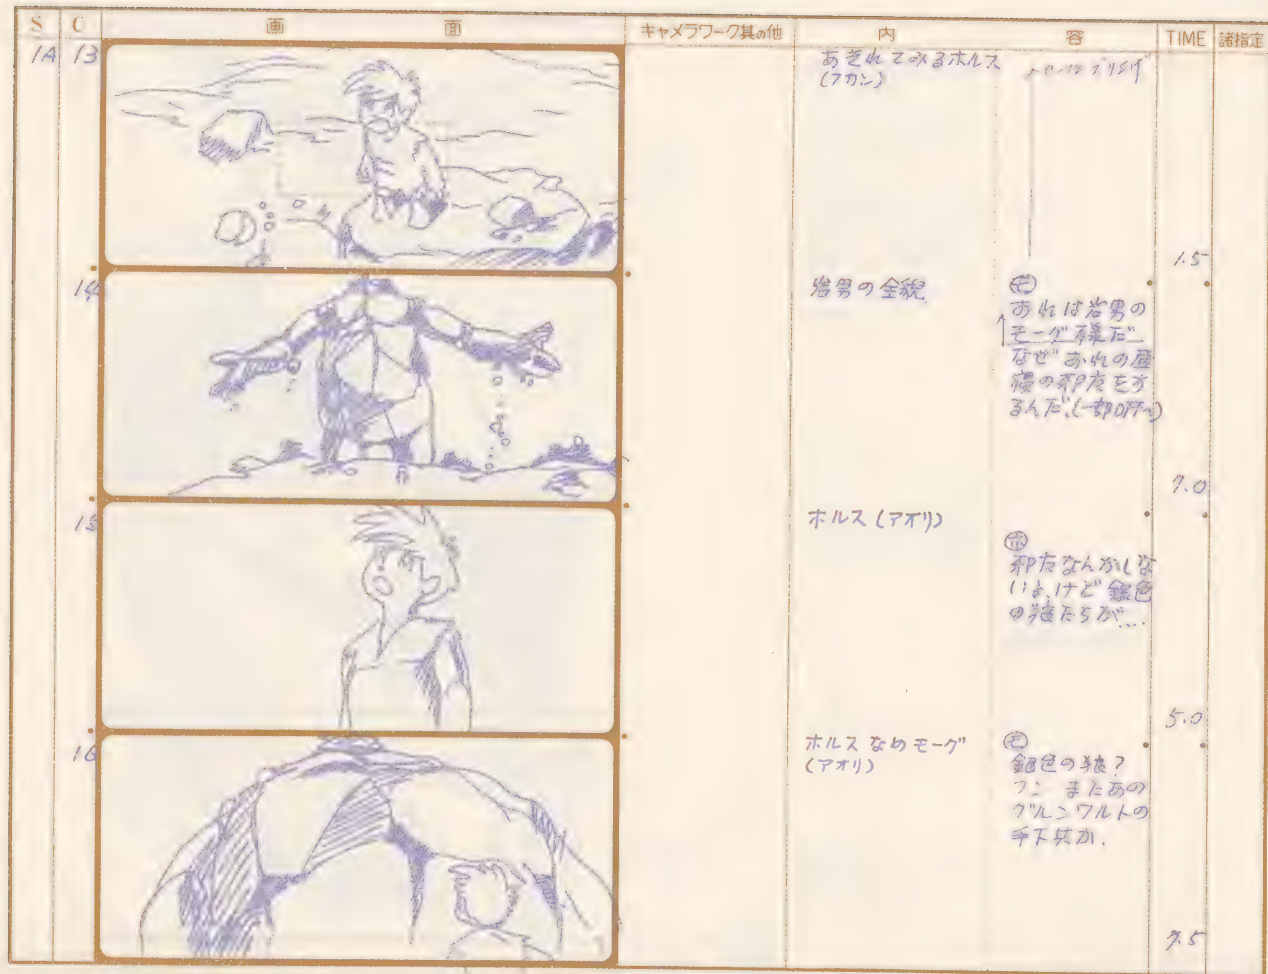 S C 画 面 キャメラワーク其の他 内 容 TIME 諸指定
1A 13
あきれてみるホルス
(フカン)
1.5
14
岩男の全貌
モ
あれは岩男の
モーグ様だ
なぜおれの昼
寝の邪広をす
るんだ、(一部OFFへ)
7.0
15
ホルス (アオリ)
ホ
邪広なんかしな
いよ、けど銀色
の狼たちが…
5.0
16
ホルスなめモーグ
(アオリ)
モ
銀色の狼?
フン またあの
グルンワルトの
手下共か.
7.5